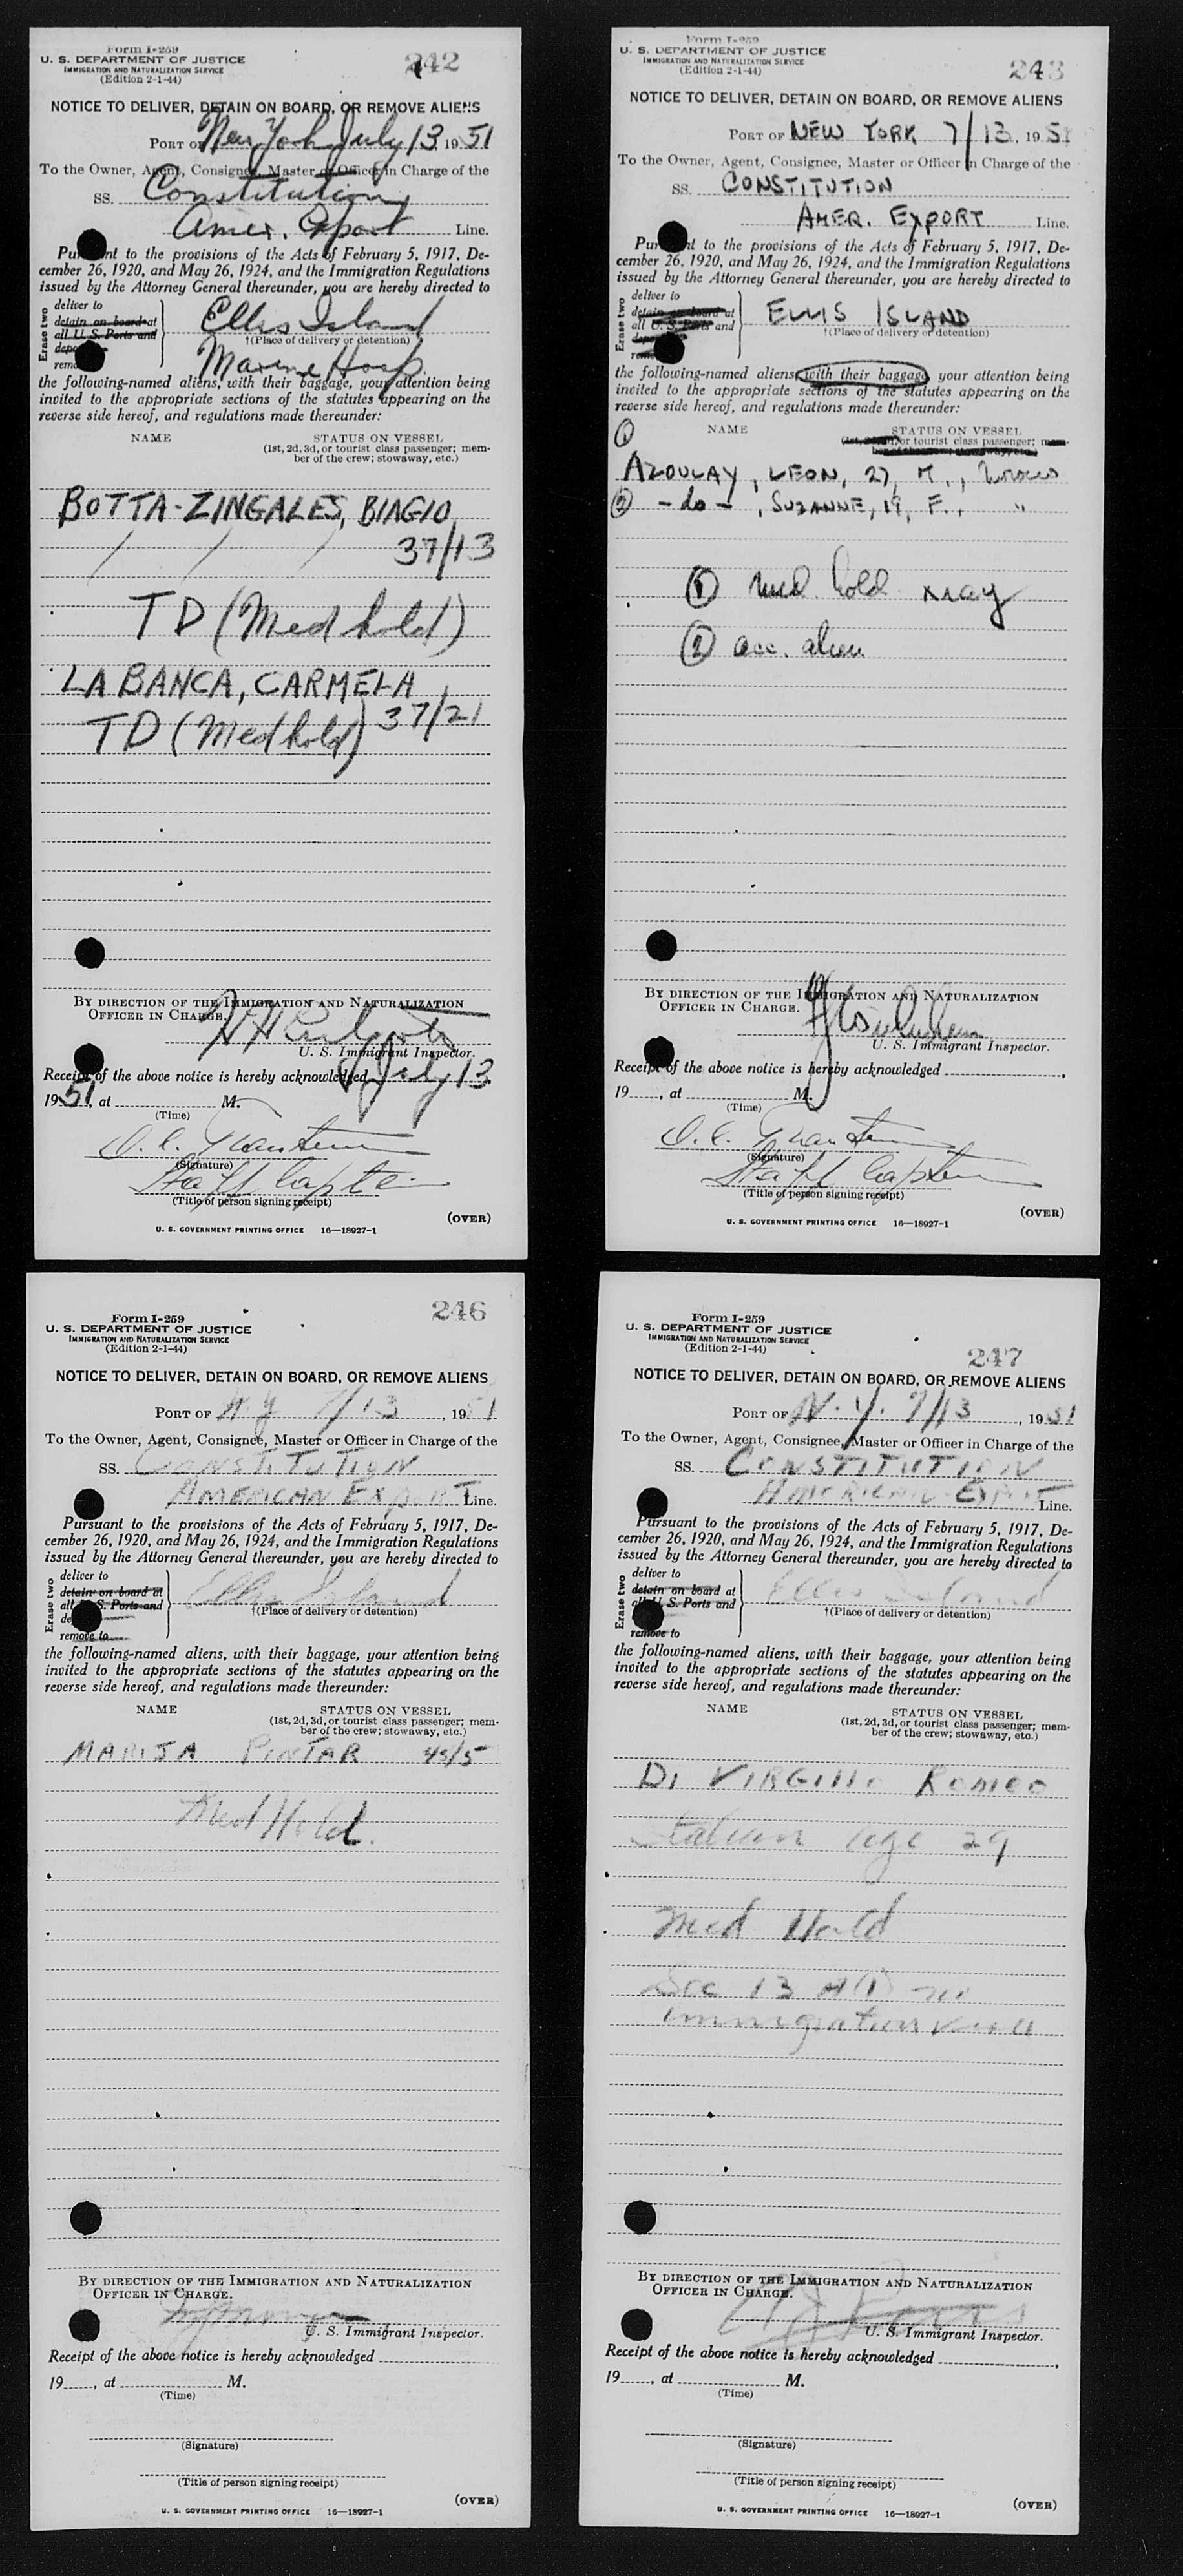 Form I-259
242
U. S. DEPARTMENT OF JUSTICE
IMMIGRATION AND NATURALIZATION SERVICE
(Edition 2-1-44)
NOTICE TO DELIVER, DETAIN ON BOARD, OR REMOVE ALIENS
PORT OF New York July 13, 1951
To the Owner, Agent, Consignee, Master or Officer in Charge of the
SS. Constitution
Amer. Export Line.
Pursuant to the provisions of the Acts of February 5, 1917, De-
cember 26, 1920, and May 26, 1924, and the Immigration Regulations
issued by the Attorney General thereunder, you are hereby directed to
Erase two
deliver to
detain on board at
all U. S. Ports and
depo
remo
Ellis Island
†(Place of delivery or detention)
Marine Hosp.
the following-named aliens, with their baggage, your attention being
invited to the appropriate sections of the statutes appearing on the
reverse side hereof, and regulations made thereunder:
NAME STATUS ON VESSEL
(1st, 2d, 3d, or tourist class passenger; mem-
ber of the crew; stowaway, etc.)
BOTTA-ZINGALES, BIAGIO
37/13
TD (Med hold)
LA BANCA, CARMELA
TD (Med hold) 37/21
BY DIRECTION OF THE IMMIGRATION AND NATURALIZATION
OFFICER IN CHARGE.
U. S. Immigrant Inspector.
Receipt of the above notice is hereby acknowledged July 13
1951, at M.
(Time)
(Signature)
Staff Captain
(Title of person signing receipt)
(OVER)
U. S. GOVERNMENT PRINTING OFFICE 16—18927-1
Form I-259
U. S. DEPARTMENT OF JUSTICE
IMMIGRATION AND NATURALIZATION SERVICE
(Edition 2-1-44)
243
NOTICE TO DELIVER, DETAIN ON BOARD, OR REMOVE ALIENS
PORT OF NEW YORK 7/13, 1951
To the Owner, Agent, Consignee, Master or Officer in Charge of the
SS. CONSTITUTION
AMER. EXPORT Line.
Pursuant to the provisions of the Acts of February 5, 1917, De-
cember 26, 1920, and May 26, 1924, and the Immigration Regulations
issued by the Attorney General thereunder, you are hereby directed to
Erase two
deliver to
detain on board at
all U. S. Ports and
ELLIS ISLAND
†(Place of delivery or detention)
the following-named aliens, with their baggage, your attention being
invited to the appropriate sections of the statutes appearing on the
reverse side hereof, and regulations made thereunder:
NAME STATUS ON VESSEL
or tourist class passenger; mem-
1 AZOULAY, LEON, 27, M.,
2 -do-, SUZANNE, 19, F., "
1 med. hold
2 acc. alien
BY DIRECTION OF THE IMMIGRATION AND NATURALIZATION
OFFICER IN CHARGE.
U. S. Immigrant Inspector.
Receipt of the above notice is hereby acknowledged
19 , at M.
(Time)
(Signature)
Staff Captain
(Title of person signing receipt)
(OVER)
U. S. GOVERNMENT PRINTING OFFICE 16—18927-1
Form I-259
246
U. S. DEPARTMENT OF JUSTICE
IMMIGRATION AND NATURALIZATION SERVICE
(Edition 2-1-44)
NOTICE TO DELIVER, DETAIN ON BOARD, OR REMOVE ALIENS
PORT OF N Y 7/13, 1951
To the Owner, Agent, Consignee, Master or Officer in Charge of the
SS. CONSTITUTION
AMERICAN EXPORT Line.
Pursuant to the provisions of the Acts of February 5, 1917, De-
cember 26, 1920, and May 26, 1924, and the Immigration Regulations
issued by the Attorney General thereunder, you are hereby directed to
Erase two
deliver to
detain on board at
all U. S. Ports and
de
remove to
Ellis Island
†(Place of delivery or detention)
the following-named aliens, with their baggage, your attention being
invited to the appropriate sections of the statutes appearing on the
reverse side hereof, and regulations made thereunder:
NAME STATUS ON VESSEL
(1st, 2d, 3d, or tourist class passenger; mem-
ber of the crew; stowaway, etc.)
MARIJA PINTAR 45/5
Med Hold.
BY DIRECTION OF THE IMMIGRATION AND NATURALIZATION
OFFICER IN CHARGE.
U. S. Immigrant Inspector.
Receipt of the above notice is hereby acknowledged
19 , at M.
(Time)
(Signature)
(Title of person signing receipt)
(OVER)
U. S. GOVERNMENT PRINTING OFFICE 16—18927-1
Form I-259
U. S. DEPARTMENT OF JUSTICE
IMMIGRATION AND NATURALIZATION SERVICE
(Edition 2-1-44)
247
NOTICE TO DELIVER, DETAIN ON BOARD, OR REMOVE ALIENS
PORT OF N. Y. 7/13, 1951
To the Owner, Agent, Consignee, Master or Officer in Charge of the
SS. CONSTITUTION
AMERICAN EXPORT Line.
Pursuant to the provisions of the Acts of February 5, 1917, De-
cember 26, 1920, and May 26, 1924, and the Immigration Regulations
issued by the Attorney General thereunder, you are hereby directed to
Erase two
deliver to
detain on board at
all U. S. Ports and
remove to
Ellis Island
†(Place of delivery or detention)
the following-named aliens, with their baggage, your attention being
invited to the appropriate sections of the statutes appearing on the
reverse side hereof, and regulations made thereunder:
NAME STATUS ON VESSEL
(1st, 2d, 3d, or tourist class passenger; mem-
ber of the crew; stowaway, etc.)
DI VIRGILIO ROMEO
Italian age 29
Med Hold
Sec 13 A(1) no
immigration visa
BY DIRECTION OF THE IMMIGRATION AND NATURALIZATION
OFFICER IN CHARGE.
U. S. Immigrant Inspector.
Receipt of the above notice is hereby acknowledged
19 , at M.
(Time)
(Signature)
(Title of person signing receipt)
(OVER)
U. S. GOVERNMENT PRINTING OFFICE 16—18927-1